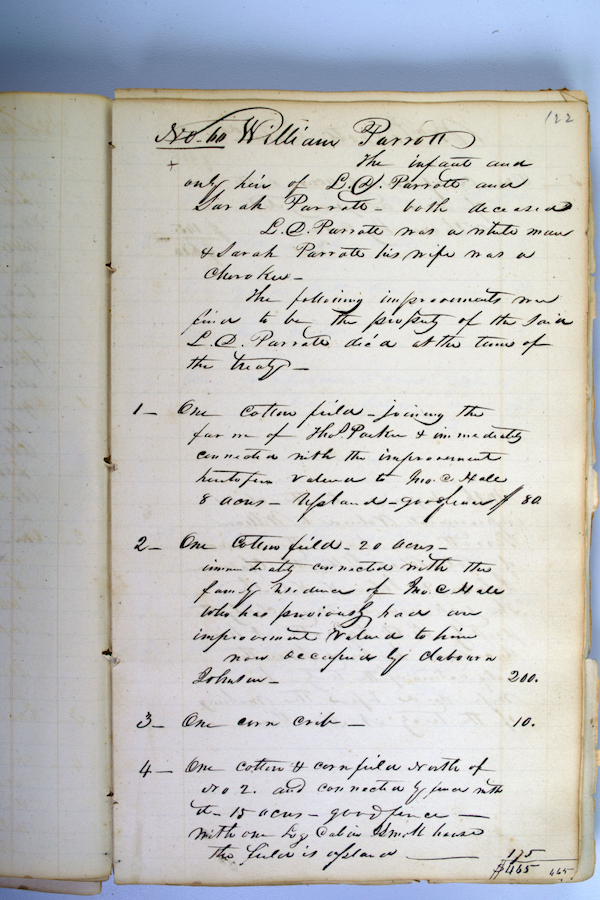 122
No. 60 William Parrott
+ The infant and
only heir of L. D. Parrott and
Sarah Parrott - both deceased
L. D. Parrott was a white man
& Sarah Parrott his wife was a
Cherokee -
The following improvements we
find to be the property of the said
L. D. Parrott dec'd at the time of
the treaty -
1 - One cotton field - joining the
farm of Thos. Parker & immediately
connected with the improvement
heretofore valued to Jno. C. Hale
8 acres - upland - good fence $ 80.
2 - One Cotton field - 20 acres -
immediately connected with the
family residence of Jno. C. Hale
who has previously had an
improvement valued to him
now occupied by Clabourn
Johnson - 200.
3 - One corn crib - 10.
4 - One cotton & cornfield North of
No 2. and connected by fence with
it - 15 acres - good fence -
with one Log Cabin Smoke house
the field is upland - 175
$465 465